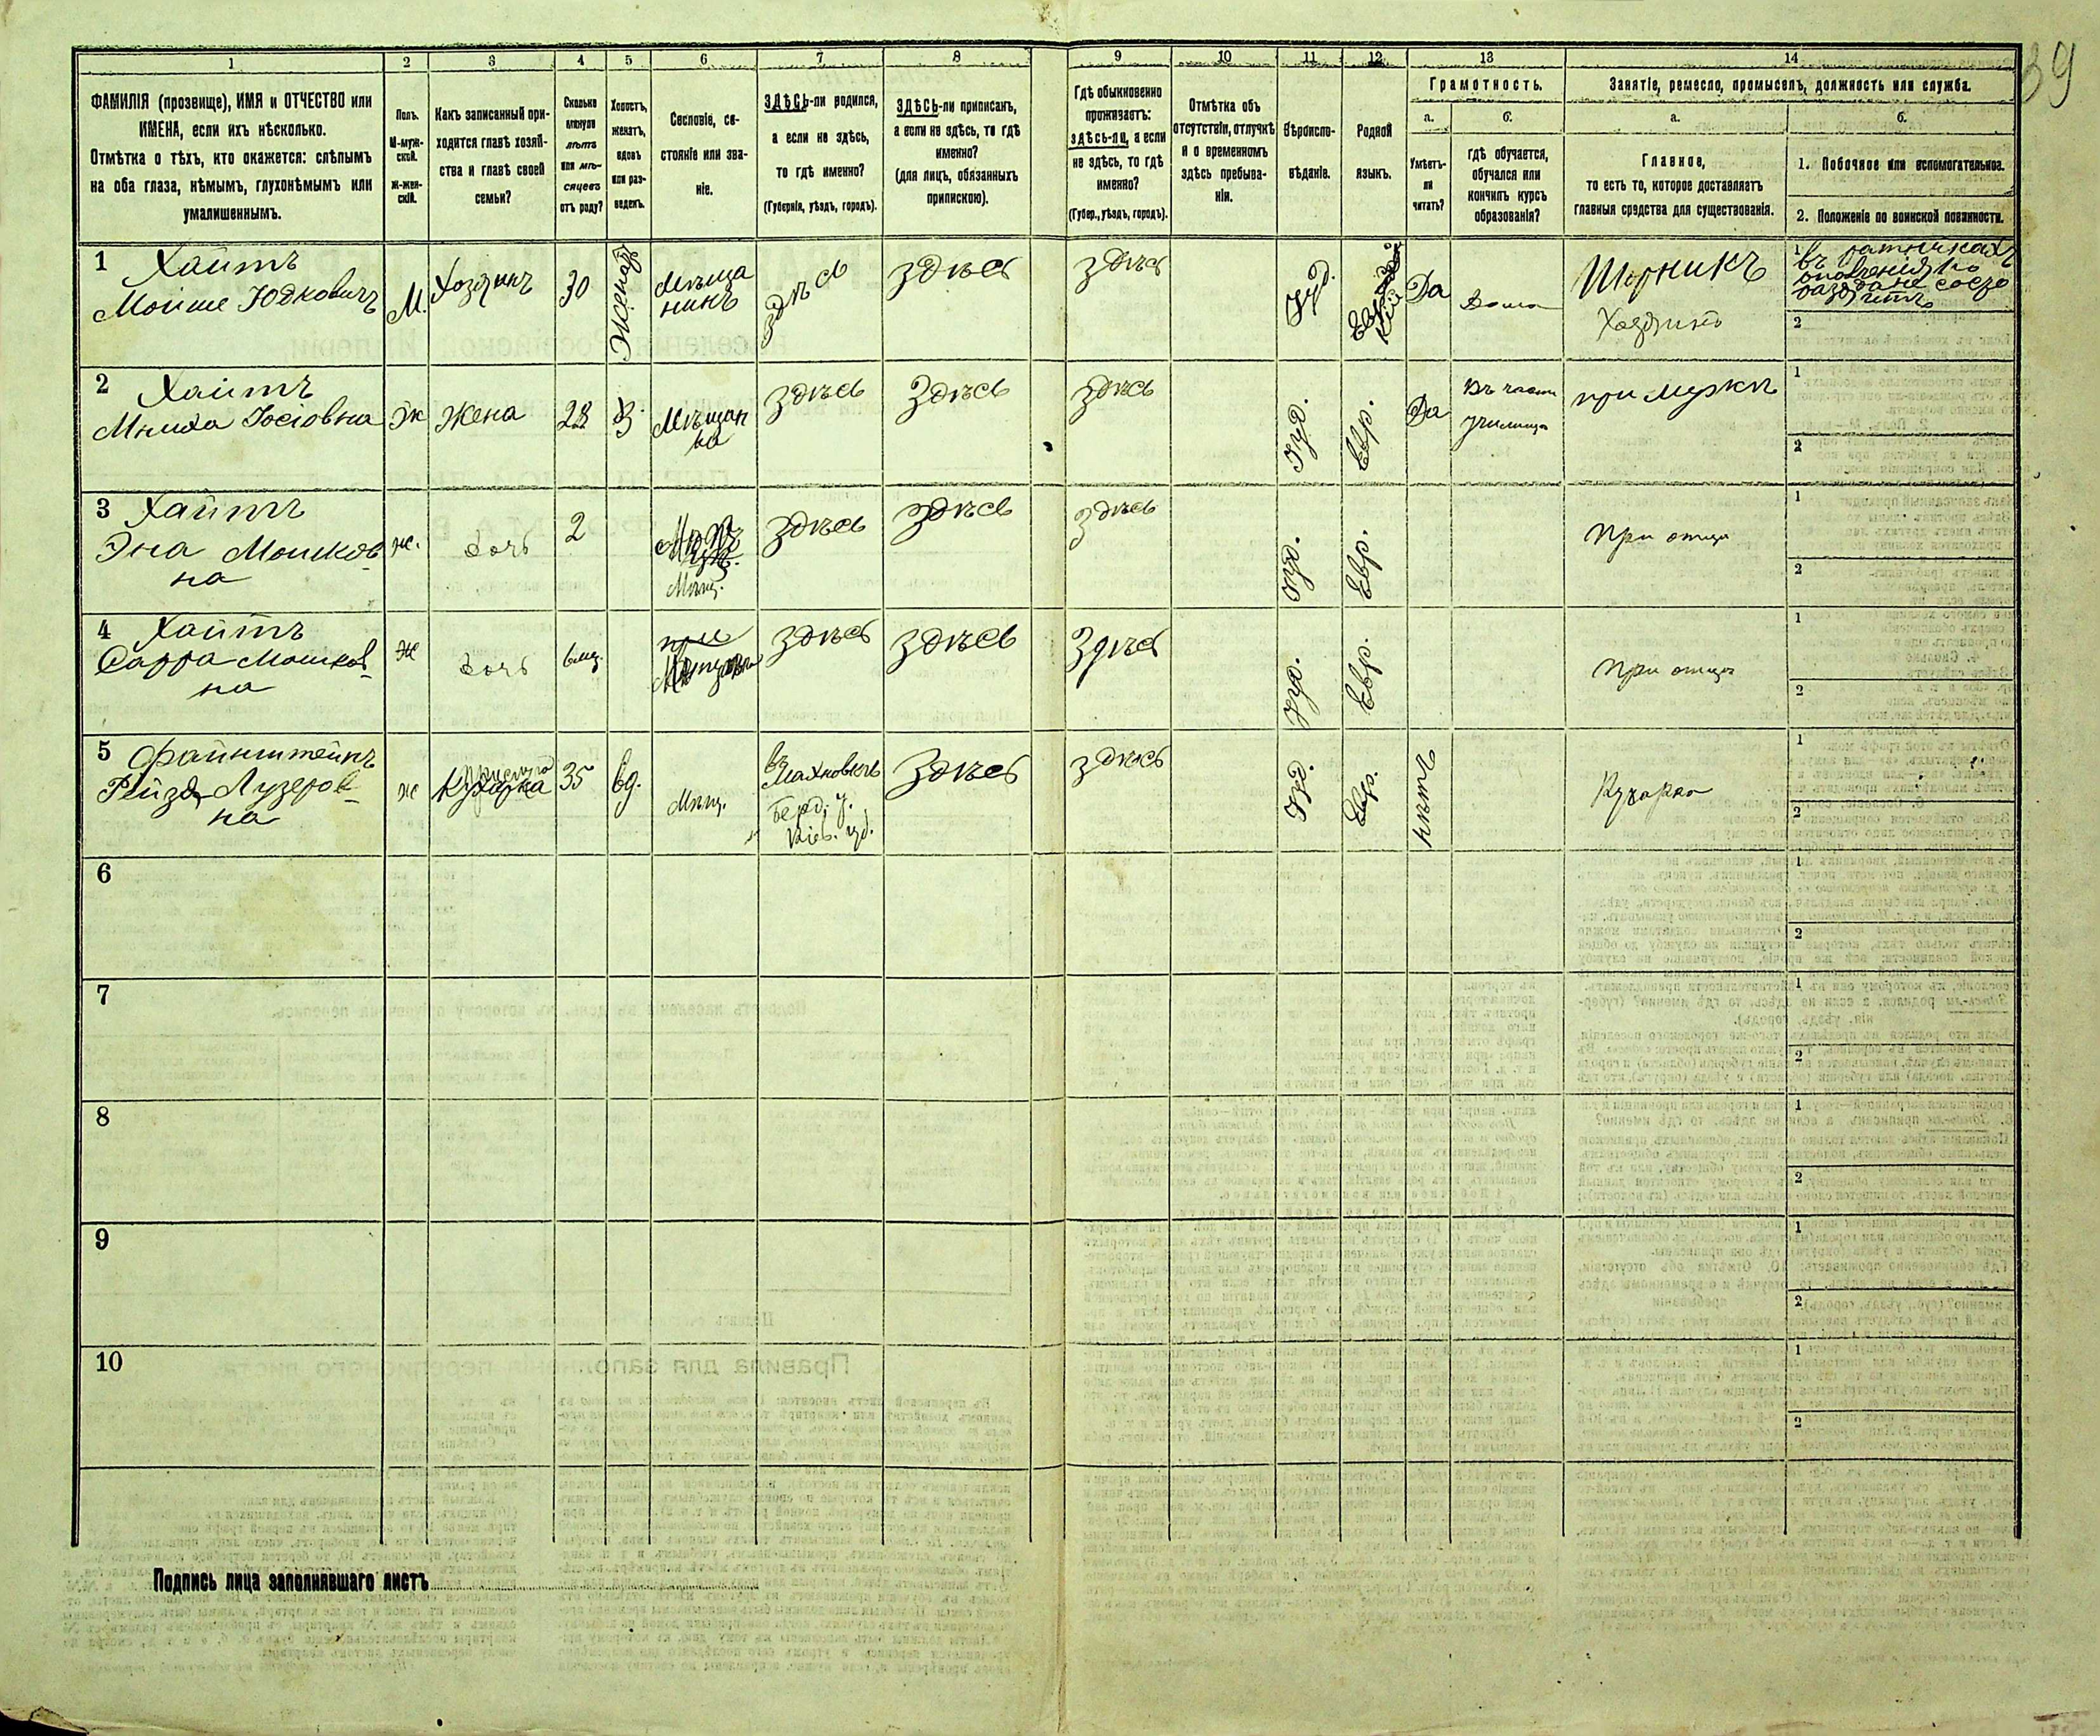 39
1 2 3 4 5 6 7 8 9 10 11 12 13 14
ФАМИЛІЯ (прозвище), ИМЯ и ОТЧЕСТВО или
ИМЕНА, если ихъ нѣсколько.
Отмѣтка о тѣхъ, кто окажется: слѣпымъ
на оба глаза, нѣмымъ, глухонѣмымъ или
умалишеннымъ.
Полъ.
М-муж-
ской.
Ж-жен-
скій.
Какъ записанный при-
ходится главѣ хозяй-
ства и главѣ своей
семьи?
Сколько
минуло
лѣтъ
или мѣ-
сяцевъ
отъ роду?
Холостъ,
женатъ,
вдовъ
или раз-
веденъ.
Сословіе, со-
стояніе или зва-
ніе.
ЗДѢСЬ-ли родился,
а если не здѣсь,
то гдѣ именно?
(Губернія, уѣздъ, городъ).
ЗДѢСЬ-ли приписанъ,
а если не здѣсь, то гдѣ
именно?
(для лицъ, обязанныхъ
припискою).
Гдѣ обыкновенно
проживаетъ:
ЗДѢСЬ-ЛИ, а если
не здѣсь, то гдѣ
именно?
(Губер., уѣздъ, городъ).
Отмѣтка объ
отсутствіи, отлучкѣ
и о временномъ
здѣсь пребыва-
ніи.
Вѣроиспо-
вѣданіе.
Родной
языкъ.
Грамотность.
а. б.
Умѣетъ-
ли
читать?
гдѣ обучается,
обучался или
кончилъ курсъ
образованія?
Занятіе, ремесло, промыселъ, должность или служба.
а. б.
Главное,
то есть то, которое доставляетъ
главныя средства для существованія.
1. Побочное или вспомогательное.
2. Положеніе по воинской повинности.
1 Хаитъ
Мойше Юдковичъ
М.
Хозяинъ
30
Женатъ
Мѣща
нинъ
здѣсь
здѣсь
здѣсь
Іуд.
Да
Дома
Хозяинъ
1 въ ратникахъ
ополченія
2
2 Хаитъ
Іосіовна
Ж
Жена
28
З.
Мѣщан
ка
здѣсь
здѣсь
здѣсь
Іуд.
Евр.
Да
училище
при мужѣ
1
2
3 Хаитъ
Эна Мошков
на
ж.
дочь
2
Мѣщ.
здѣсь
здѣсь
здѣсь
Іуд.
Евр.
При отцѣ
1
2
4 Хаитъ
Сарра Мошков
на
Ж
дочь
6 мц.
здѣсь
здѣсь
здѣсь
Іуд.
Евр.
При отцѣ
1
2
5 Файнштейнъ
Рейзя Лузеров
на
ж
Кухарка
35
вд.
Мѣщ.
въ
Махновкѣ
Берд. у.
Кіев. губ.
здѣсь
здѣсь
Іуд.
Евр.
нѣтъ
Кухарка
1
2
6
1
2
7
1
2
8
1
2
9
1
2
10
1
2
Подпись лица заполнявшаго листъ